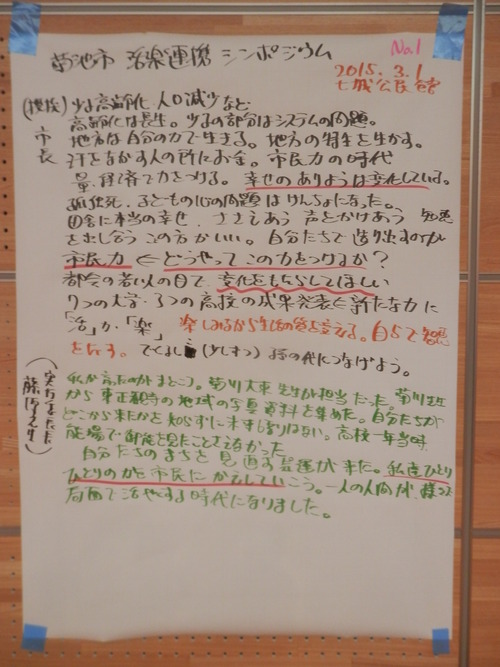 菊池市 活楽連携 シンポジウム
No.1
2015.3.1
七城公民館
(挨拶) 少子高齢化 人口減少など
市長
高齢化は長生。少子の部分はシステムの問題。
地方は自分の力で生きる。地方の特性を生かす。
汗をながす人の所にお金。市民力の時代
量・経済で力をつける。幸せのありようは変化している。
孤独死、子どもの心の問題はけんちょになった。
田舎に本当の幸せ、ささえあう 声をかけあう 知恵
を出し合う この方がいい。自分たちで造り出すのが
市民力 ← どうやってこの力をつけるか?
都会の若い人の目で、変化をもたらしてほしい
7つの大学・3つの高校の成果発表←新たな力に
「活」か、「楽」 楽しみながら生活の質を変える。自らで知恵
をだす。でくよし (少しずつ) 孫の代につなげよう。
私が言ったのがまとこう。菊川大東先生が担当だった。菊川先生
から 東正観寺の地域の写真資料を集めた。自分たちが
どこから来たかを知らずに来すまりはない。高校一年当時
能場で御能を見たことさえなかった
自分たちのまちを見直す 運が来た。私達ひとり
ひとりの力を市民にかえしていこう。一人の人間が、様々な
局面で活やくする時代になりました。